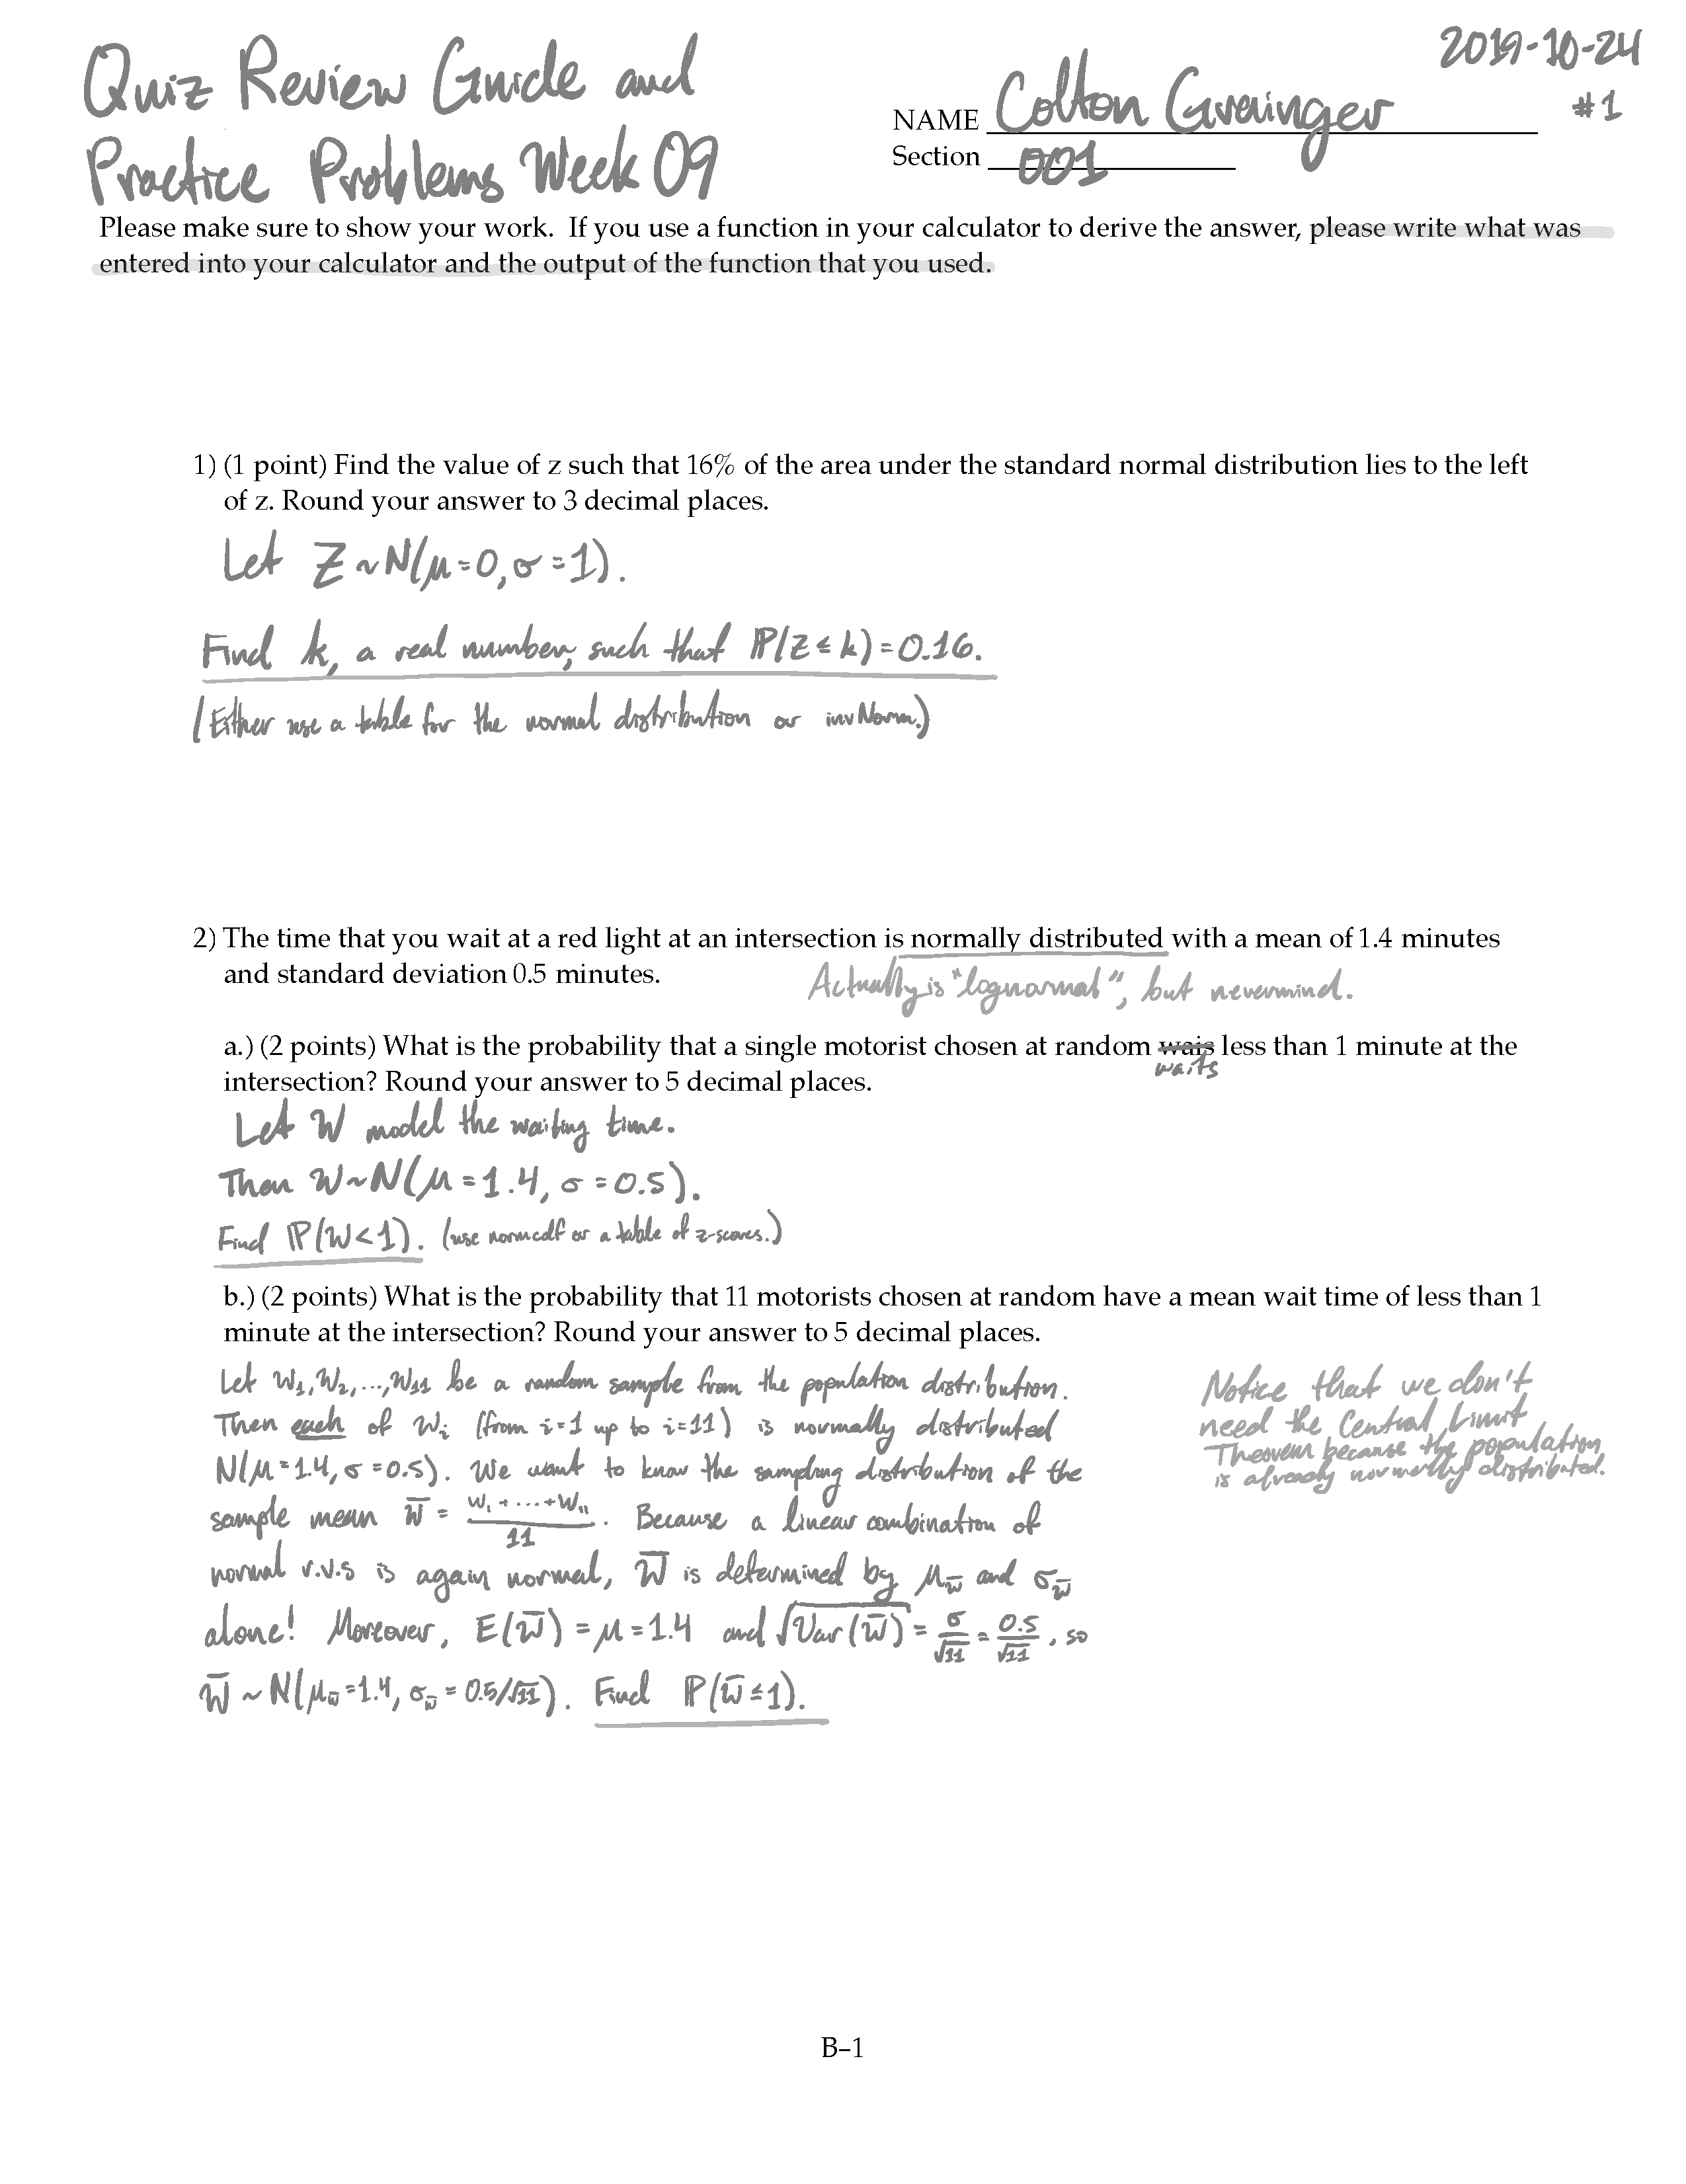 Quiz Review Guide and
Practice Problems Week 09
2019-10-24
#1
NAME Colton Grainger
Section 001
Please make sure to show your work. If you use a function in your calculator to derive the answer, please write what was
entered into your calculator and the output of the function that you used.
1) (1 point) Find the value of z such that 16% of the area under the standard normal distribution lies to the left
of z. Round your answer to 3 decimal places.
Let Z ~ N(μ=0, σ=1).
Find k, a real number, such that ℙ(Z ≤ k) = 0.16.
(Either use a table for the normal distribution or invNorm.)
2) The time that you wait at a red light at an intersection is normally distributed with a mean of 1.4 minutes
and standard deviation 0.5 minutes.
Actually is "lognormal", but nevermind.
a.) (2 points) What is the probability that a single motorist chosen at random wais less than 1 minute at the
waits
intersection? Round your answer to 5 decimal places.
Let W model the waiting time.
Then W ~ N(μ = 1.4, σ = 0.5).
Find ℙ(W < 1). (use normcdf or a table of z-scores.)
b.) (2 points) What is the probability that 11 motorists chosen at random have a mean wait time of less than 1
minute at the intersection? Round your answer to 5 decimal places.
Let W₁, W₂, ..., W₁₁ be a random sample from the population distribution.
Then each of Wᵢ (from i=1 up to i=11) is normally distributed
N(μ=1.4, σ=0.5). We want to know the sampling distribution of the
sample mean W̄ = (W₁ + ... + W₁₁)/11. Because a linear combination of
normal r.v.s is again normal, W̄ is determined by μ_W̄ and σ_W̄
alone! Moreover, E(W̄) = μ = 1.4 and √Var(W̄) = σ/√11 = 0.5/√11, so
W̄ ~ N(μ_W̄ = 1.4, σ_W̄ = 0.5/√11). Find ℙ(W̄ ≤ 1).
Notice that we don't
need the Central Limit
Theorem because the population
is already normally distributed.
B–1